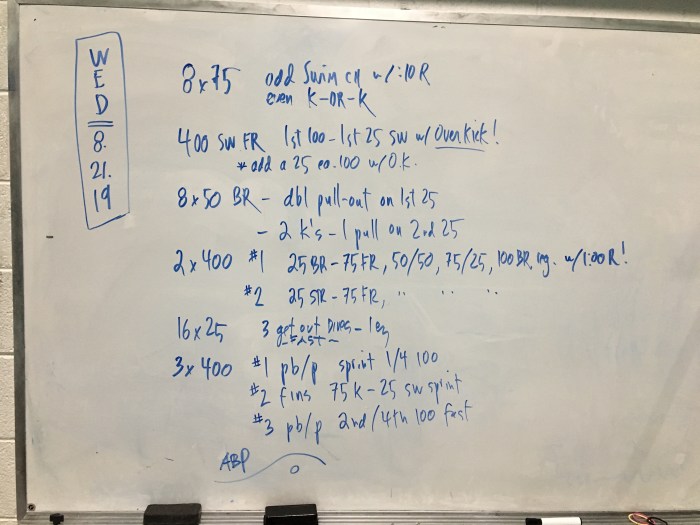 WED
8.
21.
19
8x75 odd Swim ch w/:10 R
even K-DR-K
400 SW FR 1st 100-1st 25 sw w/ Over Kick!
* add a 25 ea. 100 w/ O.K.
8x50 BR - dbl pull-out on 1st 25
- 2 k's - 1 pull on 2nd 25
2x400 #1 25 BR-75 FR, 50/50, 75/25, 100 BR w/1:00 R!
#2 25 STR-75 FR, " " "
16x25 3 get out Dives - 1 ez
-FAST-
3x400 #1 pb/p sprint 1/4 100
#2 fins 75 k-25 sw sprint
#3 pb/p 2nd/4th 100 fast
ABP